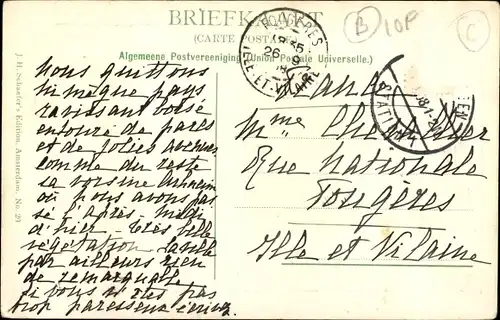 BRIEFKAART
(CARTE POSTALE)
Algemeene Postvereeniging (Union Postale Universelle.)
FOUGÈRES
26
ILLE-ET-VILAINE
B 10F
C
J. H. Schaefer's Edition, Amsterdam. No. 20
Nous quittons
Nimègue pays
ravissant boisé
entouré de parcs
et de jolies
comme du reste
sa voisine Arnheim
où nous avons pas
sé l'après-midi
d'hier. Très belle
végétation
par ailleurs rien
de remarquable
si vous n'êtes pas
trop paresseux écrivez
Mme
Rue Nationale
Fougères
Ille et Vilaine